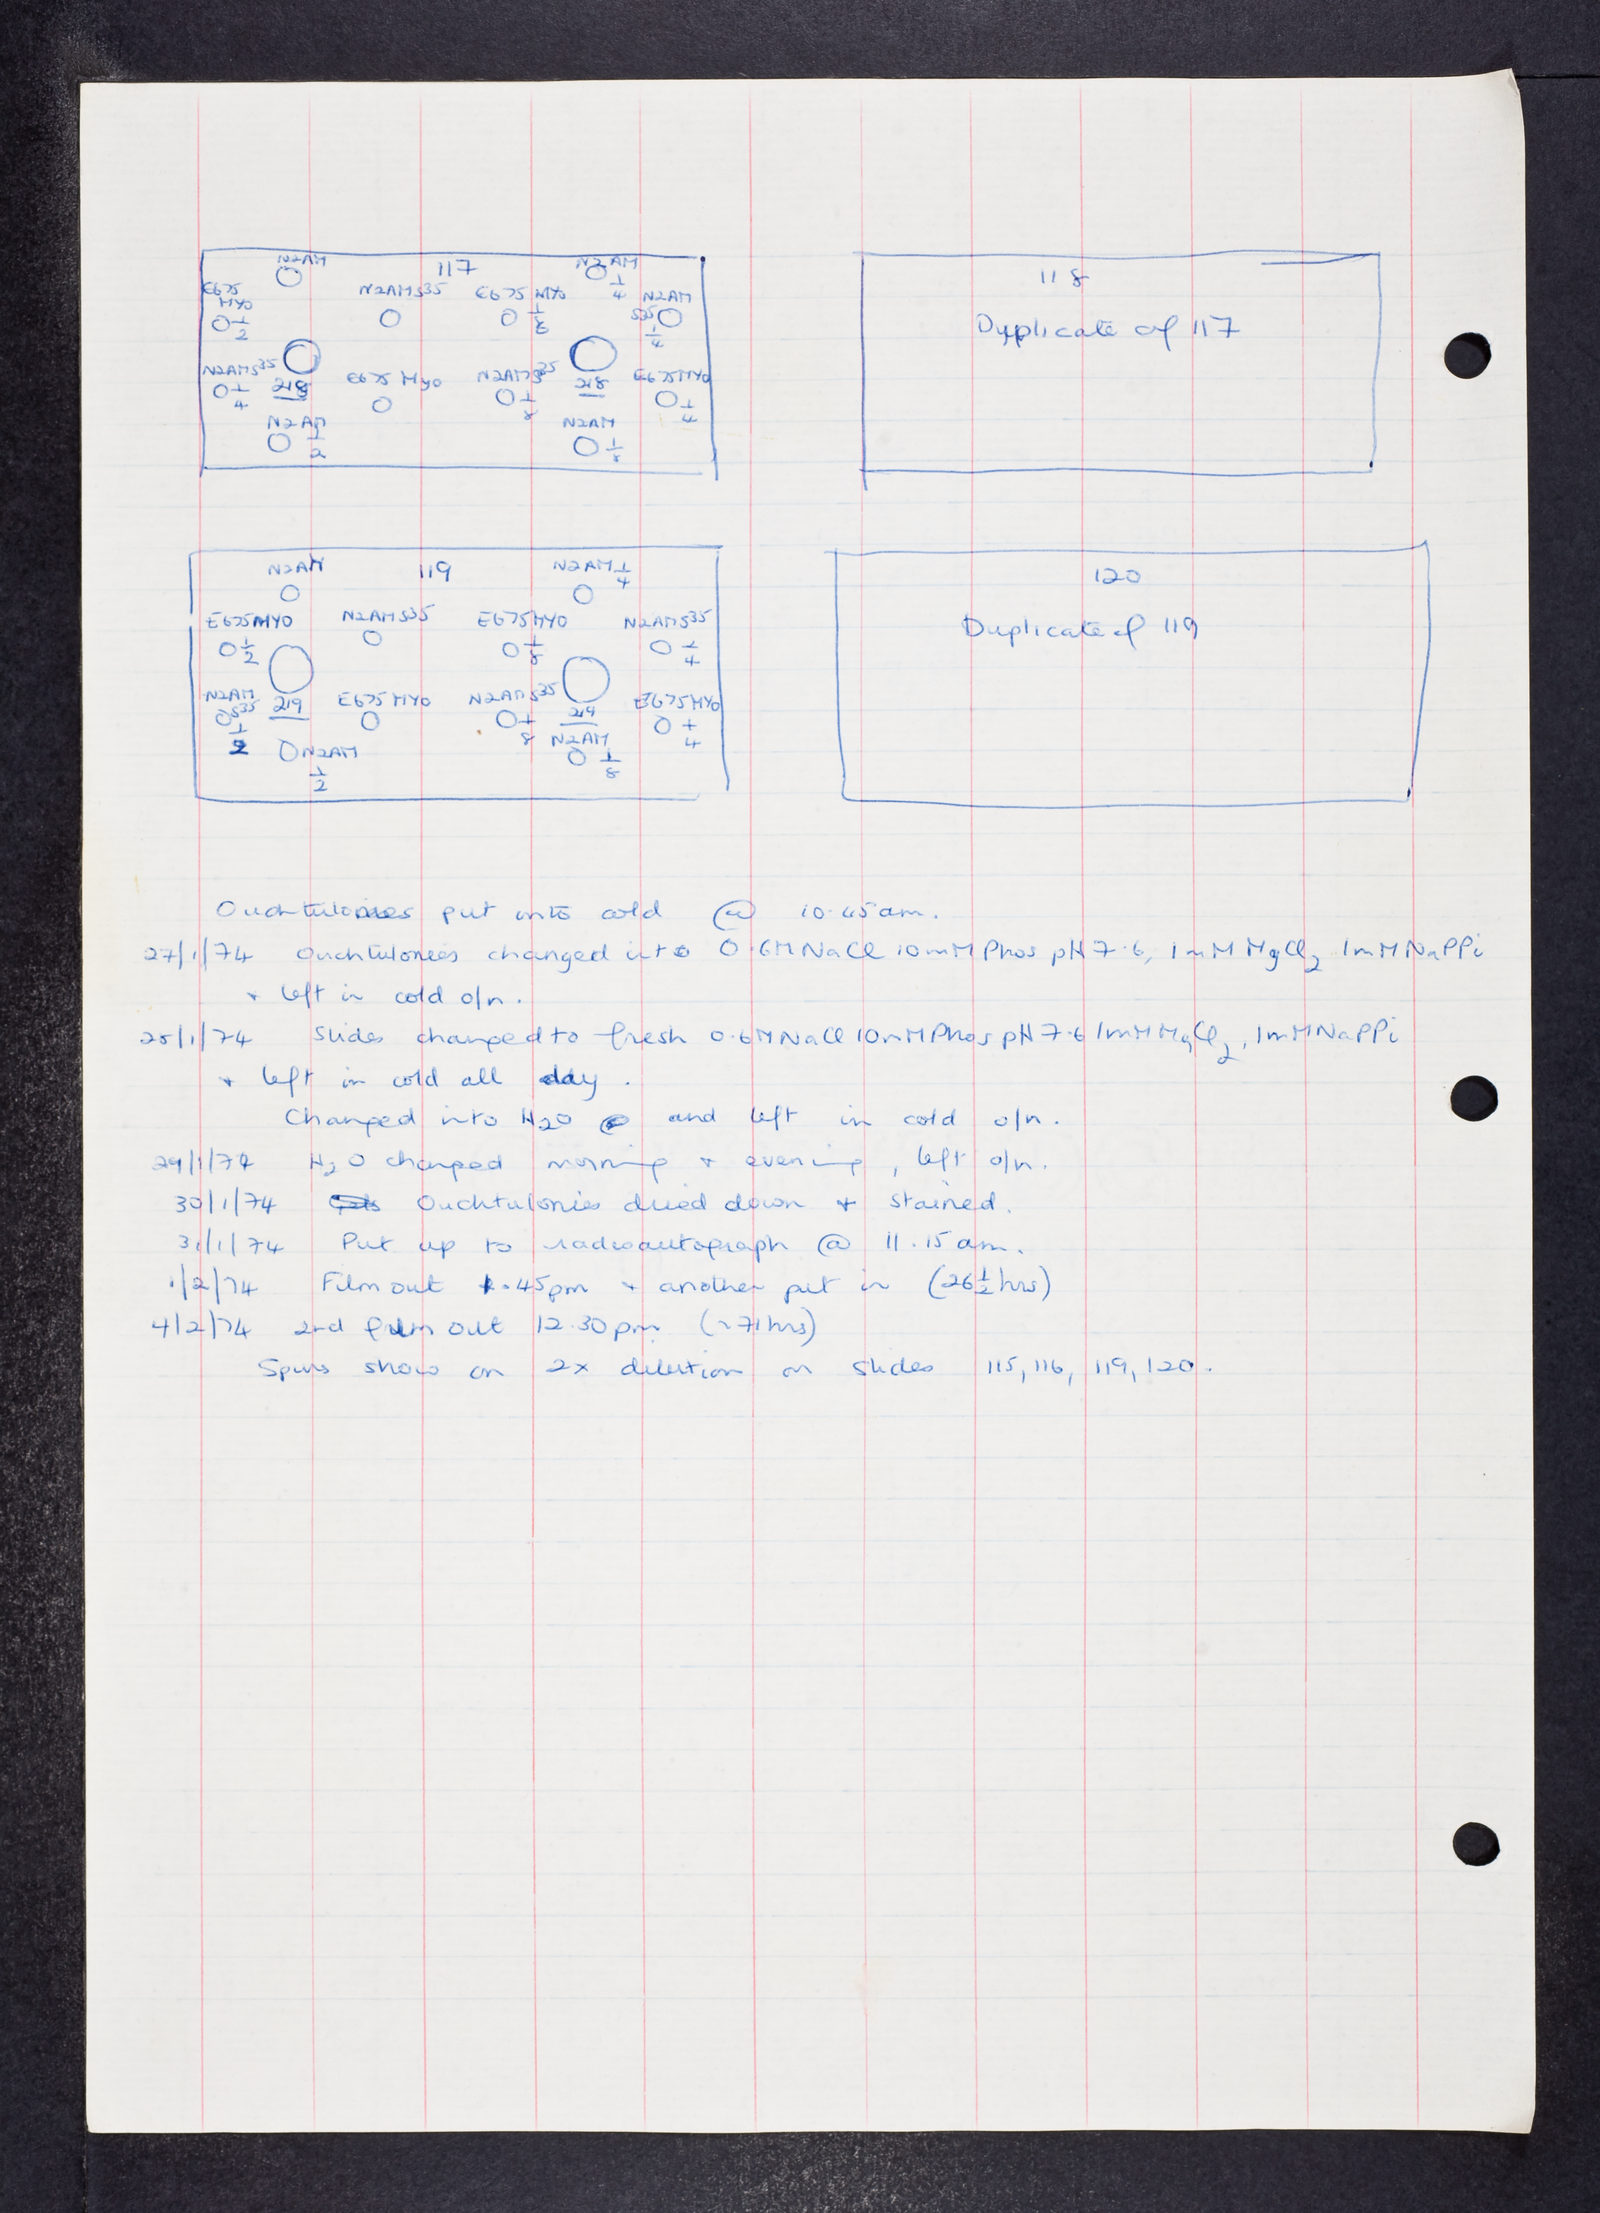 117
N2AM
N2AM 1/4
E675 MYO 1/2
N2AMS35
E675 MYO 1/8
N2AM S35 1/4
N2AMS35 1/4
218
E675 MYO
N2AMS35 1/8
218
E675MYO 1/4
N2AM 1/2
N2AM 1/8
118
Duplicate of 117
119
N2AM
N2AM 1/4
E675MYO 1/2
N2AMS35
E675MYO 1/8
N2AMS35 1/4
N2AM S35 1/2
219
E675MYO
N2AMS35 1/8
219
E675MYO 1/4
N2AM 1/2
N2AM 1/8
120
Duplicate of 119
Ouchtulonies put into cold @ 10.45am.
27/1/74 Ouchtulonies changed into 0.6M NaCl 10mM Phos pH 7.6, 1mM MgCl2 1mM NaPPi
+ left in cold o/n.
28/1/74 Slides changed to fresh 0.6M NaCl 10mM Phos pH 7.6 1mM MgCl2, 1mM NaPPi
+ left in cold all day.
Changed into H2O and left in cold o/n.
29/1/74 H2O changed morning + evening, left o/n.
30/1/74 Ouchtulonies dried down + stained.
31/1/74 Put up to radioautograph @ 11.15am.
1/2/74 Film out 1.45pm + another put in (26 1/2 hrs)
4/2/74 2nd film out 12.30pm (~71hrs)
Spurs show on 2x dilution on slides 115, 116, 119, 120.